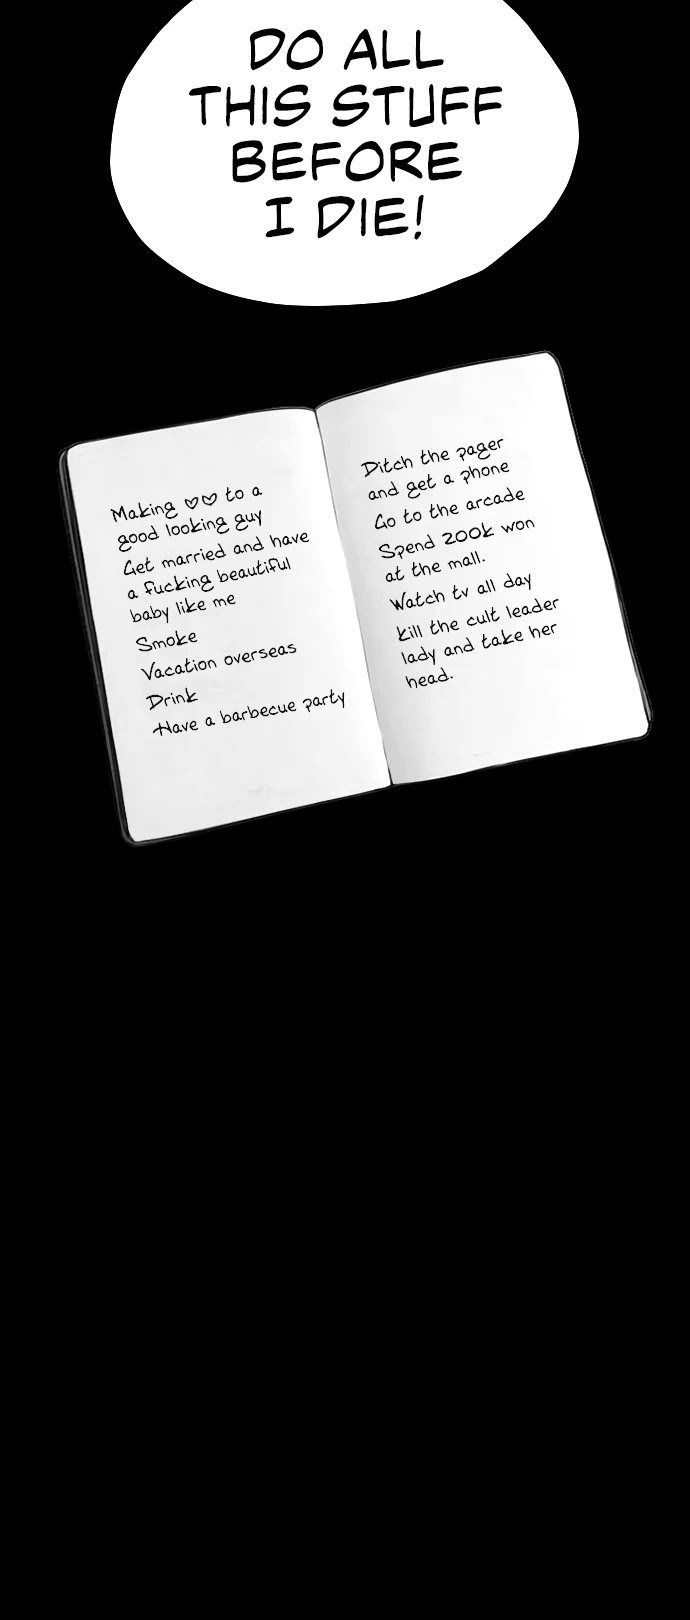 DO ALL
THIS STUFF
BEFORE
I DIE!
Making ♡♡ to a
good looking guy
Get married and have
a fucking beautiful
baby like me
Smoke
Vacation overseas
Drink
Have a barbecue party
Ditch the pager
and get a phone
Go to the arcade
Spend 200k won
at the mall.
Watch tv all day
kill the cult leader
lady and take her
head.